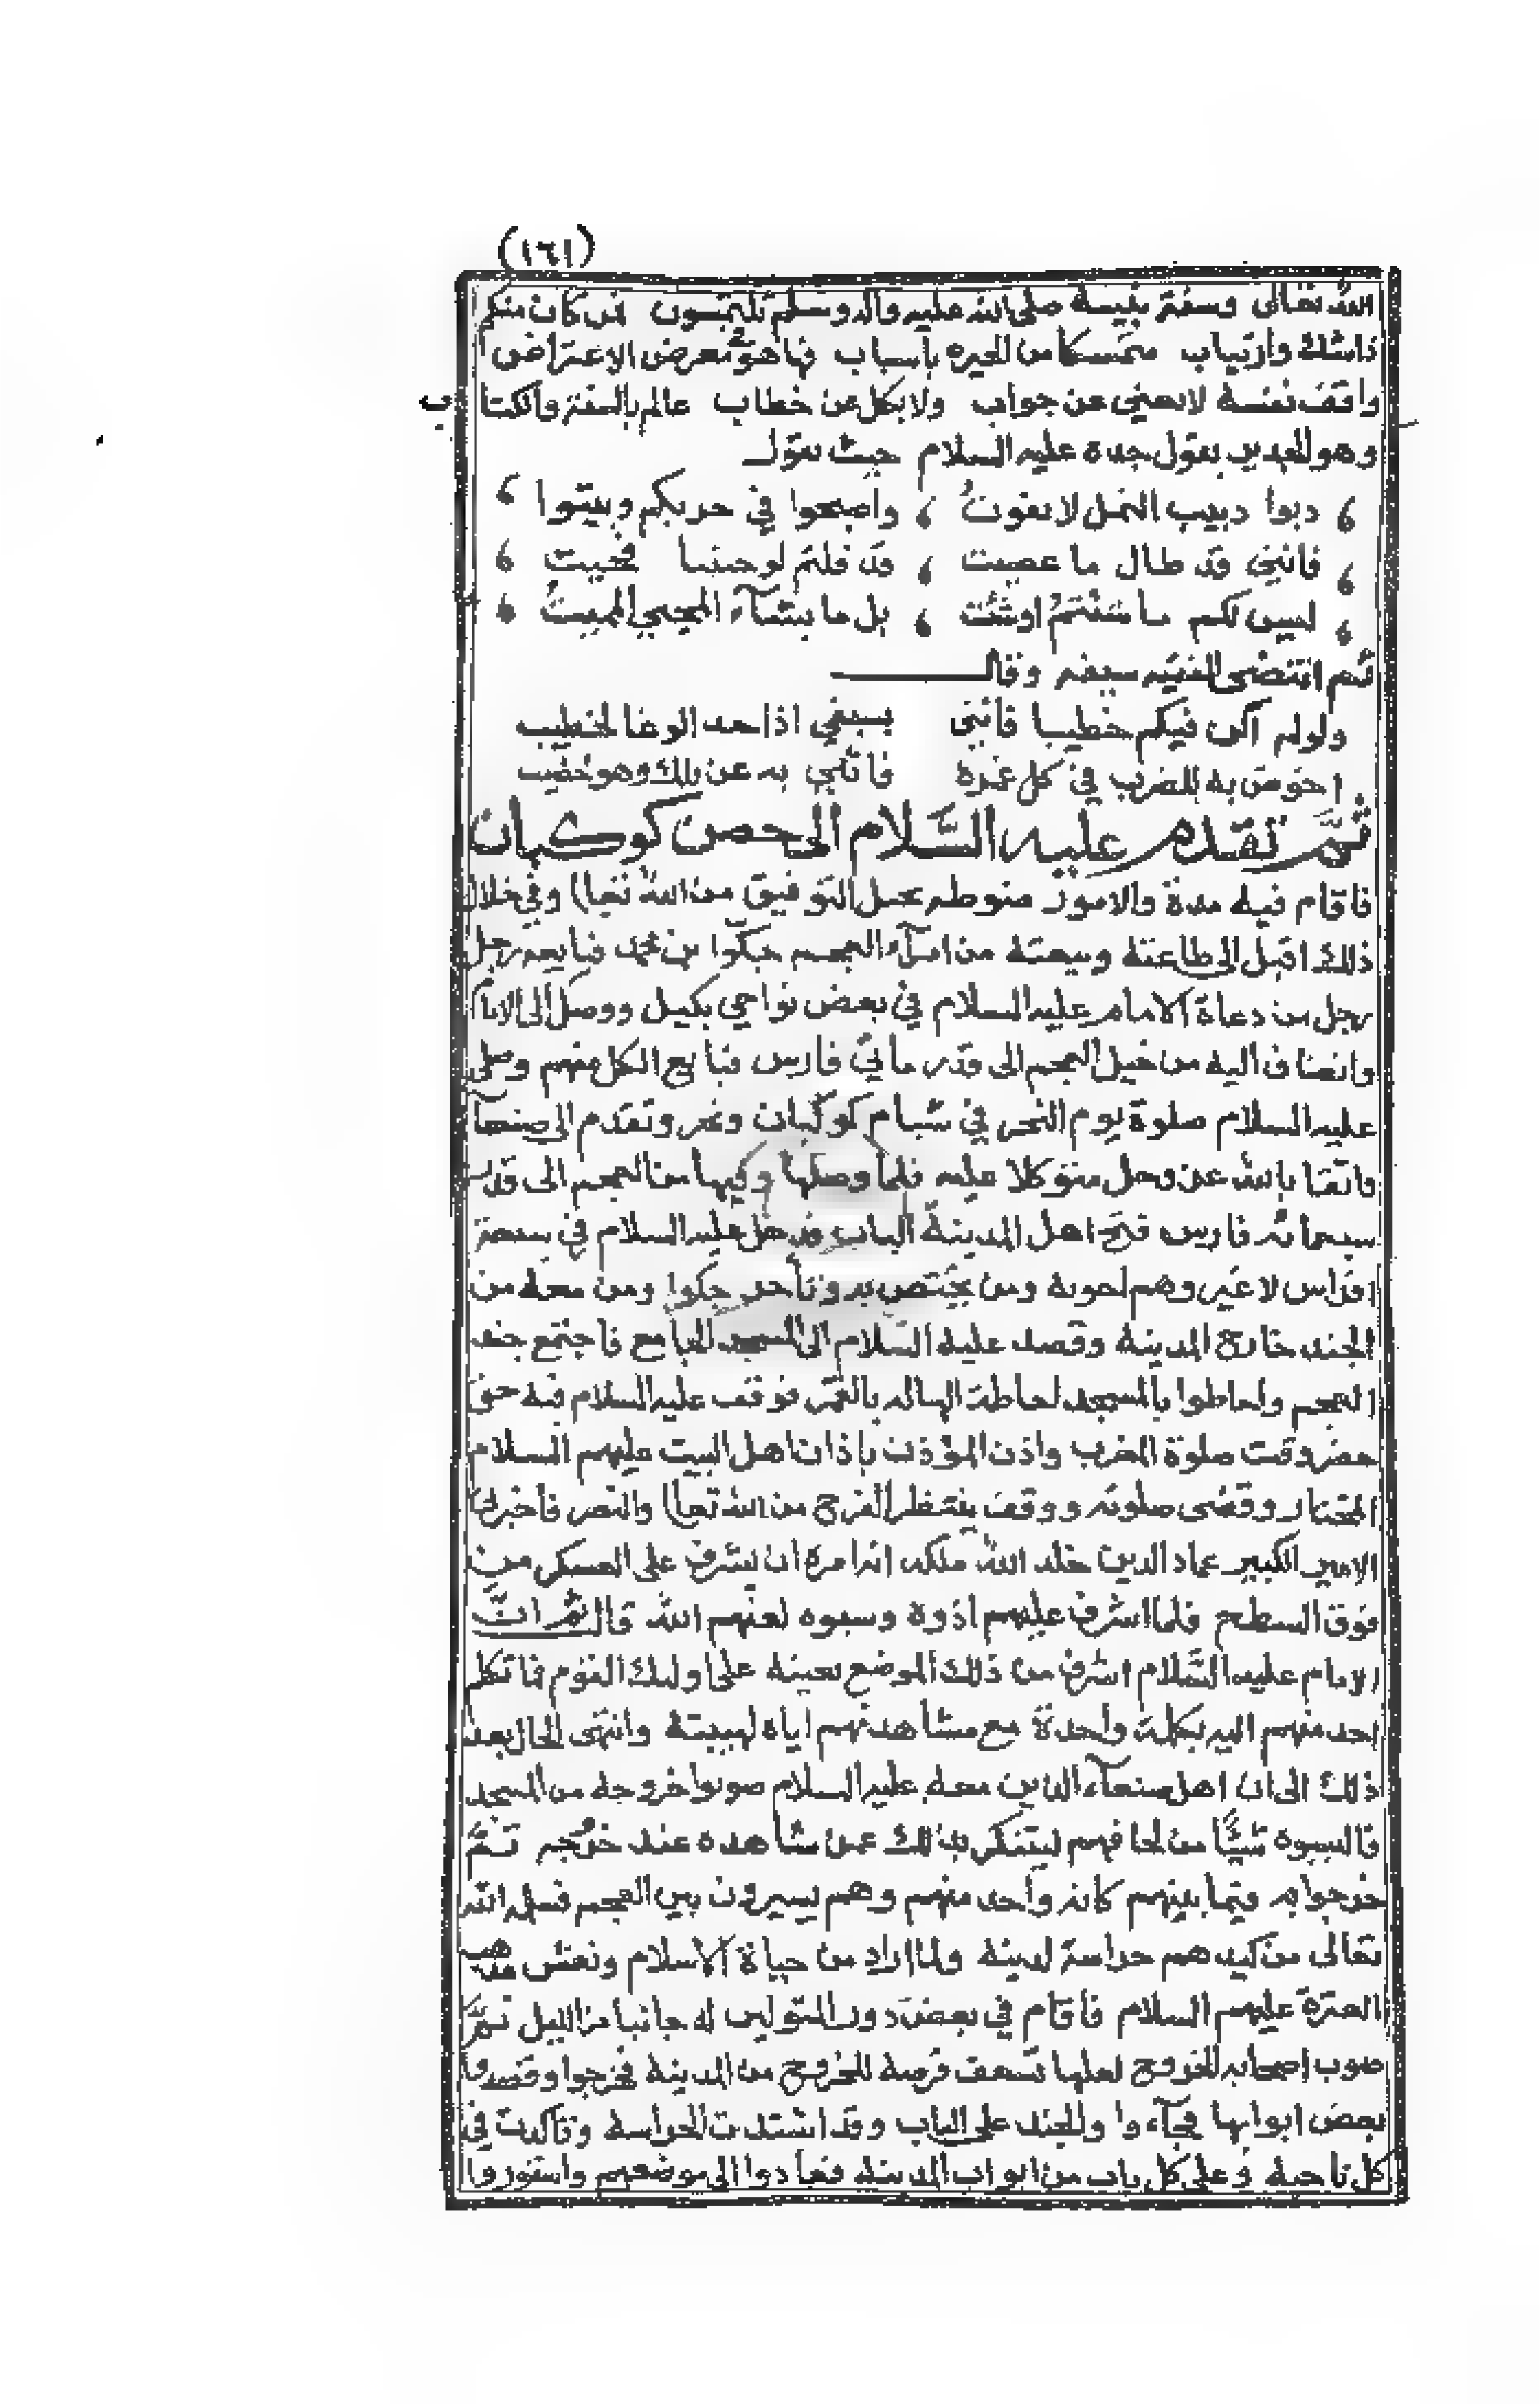 (١٦١)
الله تعالى وسنة نبيه صلى الله عليه وآله وسلم تلتمسون فمن كان منكم
ذا شك وارتياب متمسكا من الحيرة بأسباب فها هو معرض الاعتراض
واقف نفسه لا يعيى عن جواب ولا يكل عن خطاب عالم بالسنة والكتاب
وهو الجدير بقول جده عليه السلام حيث يقول
دبوا دبيب النمل لا تفوت ، وأصبحوا في حربكم وبيتوا ،
فانني قد طال ما عصيت ، قد قلتم لو جيتنا فجيت ،
ليس لكم ما شئتم او شئت ، بل ما يشآء المحيي المميت ،
ثم انتضى سيفه وقال
ولو لم اكن فيكم خطيبا فانني بسيفي اذا جد الوغا لخطيب
به للضرب في كل غمرة فانثني به عن وهو خضيب
ثم تقدم عليه السلام الى حصن كوكبان
فاقام فيه مدة والامور منوطه بحبل التوفيق من الله تعا) وفي خلال
ذلك اقبل الى طاعته وبيعته من امرآء العجم جكوا بن محمد فبايعه رجل
رجل من دعاة الامام عليه السلام في بعض نواحي بكيل ووصل الى الامام
وانضاف اليه من خيل العجم الى قدر مائتي فارس فبايع الكل منهم وصلى
عليه السلام صلوة يوم النحر في شبام كوكبان ونحر وتقدم الى صنعآ
واثقا بالله عز وجل متوكلا عليه فلما وصلها وفيها من العجم الى قدر
سبعمائه فارس فتح اهل المدينة الباب ودخل عليه السلام في بضعة
افراس لا غير وهم اخوته ومن يختص به وتأخر جكوا ومن معه من
الجند خارج المدينة وقصد عليه السلام الى المسجد الجامع فاجتمع جند
العجم واحاطوا بالمسجد احاطة الهاله بالقمر فوقف عليه السلام فيه حتى
حضر وقت صلوة المغرب واذن المؤذن باذان اهل البيت عليهم السلام
المختار وقضى صلوته ووقف ينتظر الفرج من الله تعا) والنصر فأخبرني
الامير الكبير عماد الدين خلد الله ملكه انه امره ان يشرف على العسكر من
فوق السطح فلما اشرف عليهم اذوه وسبوه لعنهم الله قال ثم ان
الامام عليه السلام اشرف من ذلك الموضع بعينه على اولئك القوم فما تكلم
احد منهم اليه بكلمة واحدة مع مشاهدتهم اياه لهيبته وانتهى الحال بعد
ذلك الى ان اهل صنعآء الذين معه عليه السلام صوبوا خروجه من المسجد
فالبسوه شيئا من لحافهم ليتنكر بذلك عمن شاهده عند خروجه ثم
خرجوا به فيما بينهم كانه واحد منهم وهم يسيرون بين العجم فسلمه الله
تعالى من كيدهم حراسة لدينه ولما اراد من حياة الاسلام ونعش مذهب
العترة عليهم السلام فأقام في بعض دور المتولين له جانبا من الليل ثم
صوب اصحابه الخروج لعلها تسعف فرصة للخروج من المدينة فخرجوا وقصدوا
بعض ابوابها فجآءوا والجند على الباب وقد اشتدت الحراسة وتأكدت في
كل ناحية وعلى كل باب من ابواب المدينة فعادوا الى موضعهم